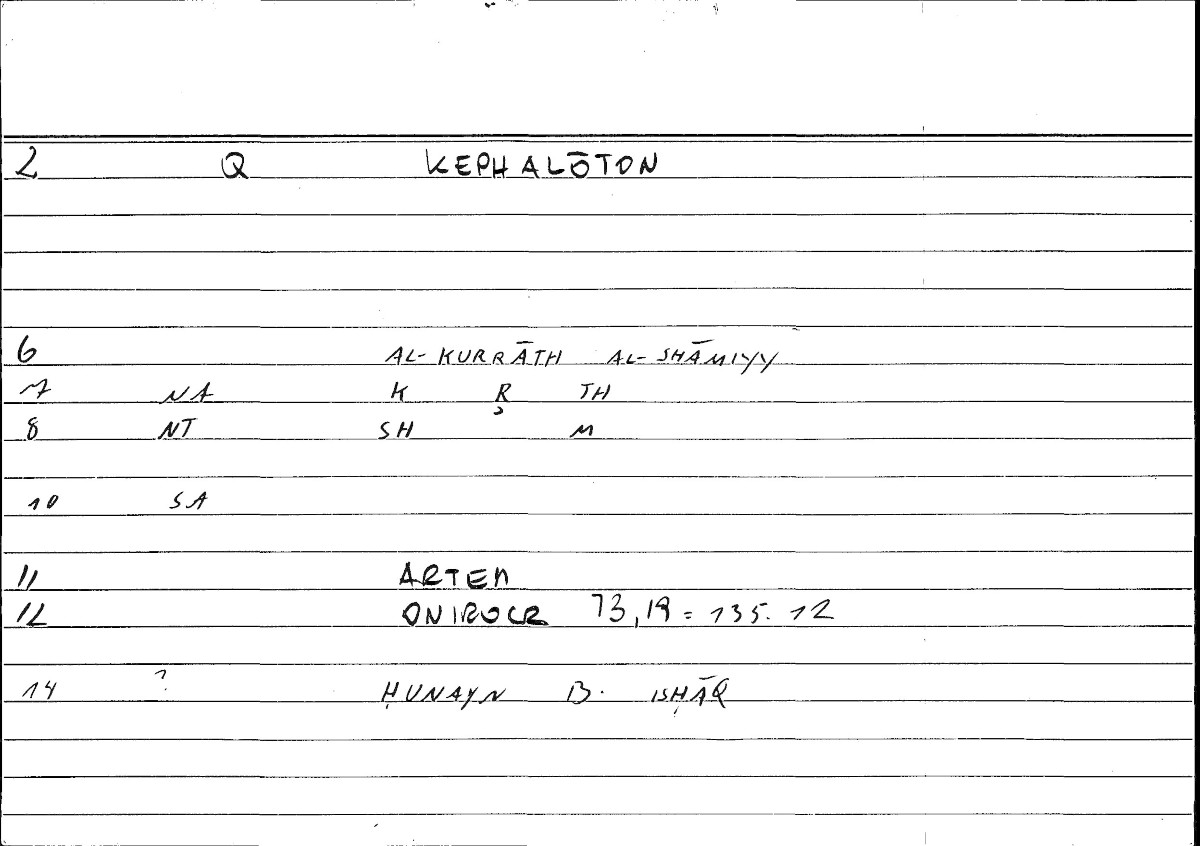 2 Q KEPHALŌTON
6 AL-KURRĀTH AL-SHĀMIYY
7 NA K R̦ TH
8 NT SH M
10 SA
11 ARTEM
12 ONIROCR 73,19 = 135.12
14 ? ḤUNAYN B. ISḤĀQ